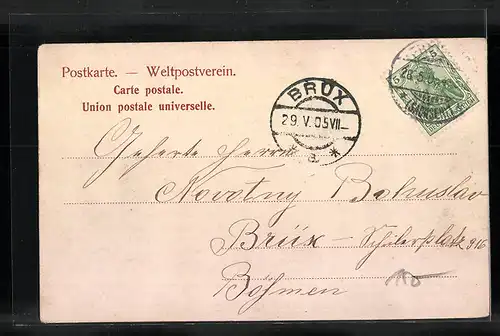 Postkarte. — Weltpostverein.
Carte postale.
Union postale universelle.
BRÜX
29. V. 05 VII
* a *
Geehrte Herrn
Novotny Bohuslav
Brüx – Schillerplatz 916
Böhmen